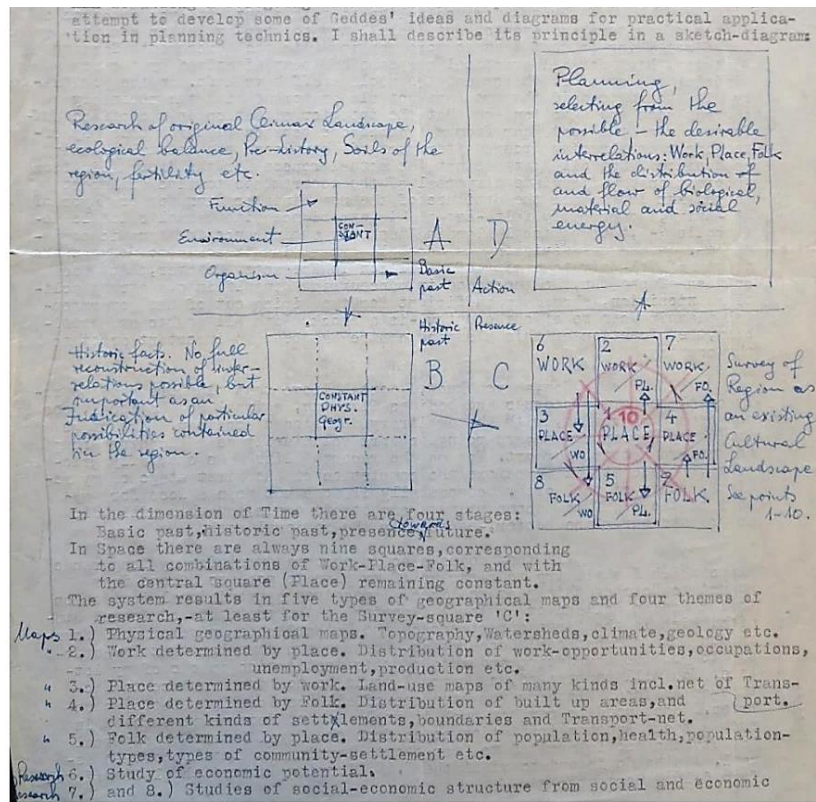 attempt to develop some of Geddes' ideas and diagrams for practical applica-
tion in planning technics. I shall describe its principle in a sketch-diagram:
Research of original Climax Landscape,
ecological balance, Pre-history, Soils of the
region, fertility etc.
Function
Environment
Organism
CON-
STANT
A
Basic
past
D
Action
Planning,
selecting from the
possible – the desirable
interrelations: Work, Place, Folk
and the distribution of
and flow of biological,
material and social
energy.
Historic facts. No full
reconstruction of inter-
relations possible, but
important as an
Indication of particular
possibilities contained
in the region.
CONSTANT
PHYS.
Geogr.
Historic
past
B
Presence
C
6 WORK
2 WORK PL.
7 WORK FO.
3 PLACE WO
1 10 PLACE
4 PLACE FO.
8 FOLK WO
5 FOLK PL.
FOLK
Survey of
Region as
an existing
Cultural
Landscape
See points
1-10.
In the dimension of Time there are four stages:
Basic past,historic past,presence (towards) future.
In Space there are always nine squares,corresponding
to all combinations of Work-Place-Folk, and with
the central square (Place) remaining constant.
The system results in five types of geographical maps and four themes of
research,-at least for the Survey-square 'C':
Maps 1.) Physical geographical maps. Topography,Watersheds,climate,geology etc.
" 2.) Work determined by place. Distribution of work-opportunities,occupations,
unemployment,production etc.
" 3.) Place determined by work. Land-use maps of many kinds incl.net of Trans-
port.
" 4.) Place determined by Folk. Distribution of built up areas,and
different kinds of settlements,boundaries and Transport-net.
" 5.) Folk determined by place. Distribution of population,health,population-
types,types of community-settlement etc.
Research 6.) Study of economic potential.
Research 7.) and 8.) Studies of social-economic structure from social and economic